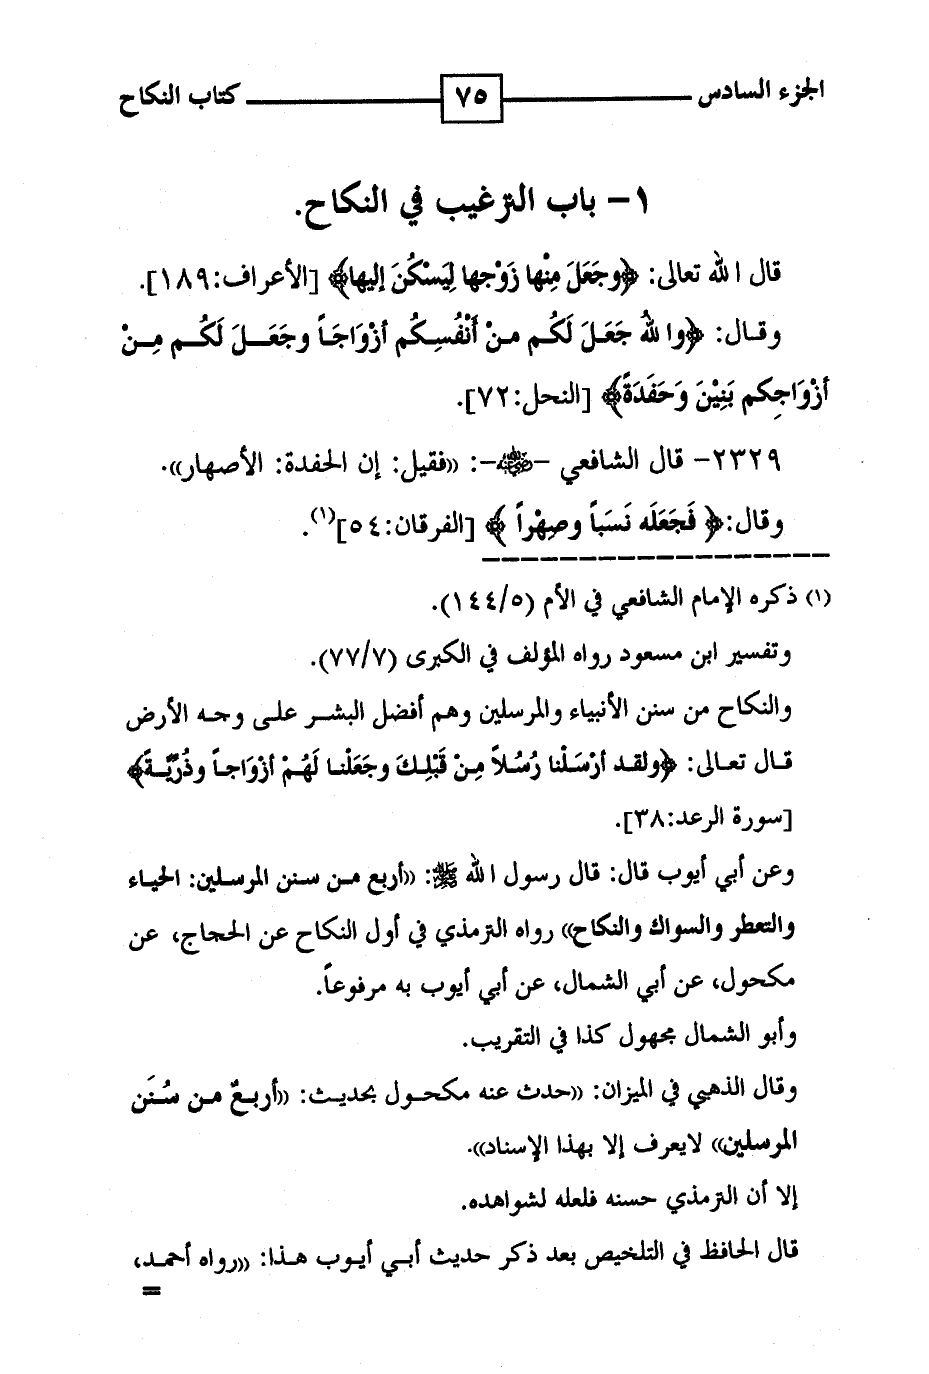 الجزء السادس ٧٥ كتاب النكاح
١- باب الترغيب في النكاح.
قال الله تعالى: ﴿وجَعَلَ مِنْها زَوْجها لِيَسْكُنَ إليها﴾ [الأعراف:١٨٩].
وقال: ﴿والله جَعَلَ لَكُم منْ أَنْفُسِكُم أزْوَاجَاً وجَعَلَ لَكُم مِنْ
أزْوَاجِكم بَنِيْنَ وَحَفَدَةً﴾ [النحل:٧٢].
٢٣٢٩- قال الشافعي -رضي الله عنه-: «فقيل: إن الحفدة: الأصهار».
وقال:﴿ فَجَعَلَه نَسَباً وصِهْراً ﴾ [الفرقان:٥٤](١).
(١) ذكره الإمام الشافعي في الأم (١٤٤/٥).
وتفسير ابن مسعود رواه المؤلف في الكبرى (٧٧/٧).
والنكاح من سنن الأنبياء والمرسلين وهم أفضل البشر على وجه الأرض
قال تعالى: ﴿ولقد أرْسَلْنا رُسُلاً مِنْ قَبْلِكَ وجَعَلْنا لَهُمْ أزْوَاجاً وذُرِّيَّةً﴾
[سورة الرعد:٣٨].
وعن أبي أيوب قال: قال رسول الله ﷺ: «أربع من سنن المرسلين: الحياء
والتعطر والسواك والنكاح» رواه الترمذي في أول النكاح عن الحجاج، عن
مكحول، عن أبي الشمال، عن أبي أيوب به مرفوعاً.
وأبو الشمال مجهول كذا في التقريب.
وقال الذهبي في الميزان: «حدث عنه مكحول بحديث: «أربعٌ من سُنَن
المرسلين» لايعرف إلا بهذا الإسناد».
إلا أن الترمذي حسنه فلعله لشواهده.
قال الحافظ في التلخيص بعد ذكر حديث أبي أيوب هذا: «رواه أحمد،
=